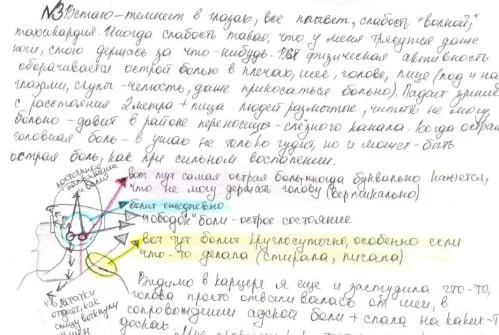 №3 Встаю-темнеет в глазах, все плывет, слабость "волной",
тахикардия. Иногда слабость такая, что у меня трясутся даже
ноги, стою держась за что-нибудь. физическая активность
оборачивается острой болью в плечах, шее, голове, лице (под и над
глазами, скулы-челюсть, даже прикасаться больно). Падает зрение
с расстояния 2 метра + лица людей размытые, читать не могу
больно-давит в районе переносицы-слёзного канала. Когда острая
головная боль-в ушах не только гудит, но и может быть
острая боль, как при сильном воспалении.
постоянное
боли
вот тут самая острая боль, иногда буквально кажется,
что не могу держать голову (вертикально)
болит ежедневно
"ободок" боли-острое состояние
вот тут болит круглосуточно, особенно если
что-то делала (стирала, писала)
в лопатки
отдает, как
спицу воткнули
Видимо в карцере я еще и застудила что-то,
голова просто отваливалась от шеи, в
сопровождении адской боли + спала на каких-то
досках.